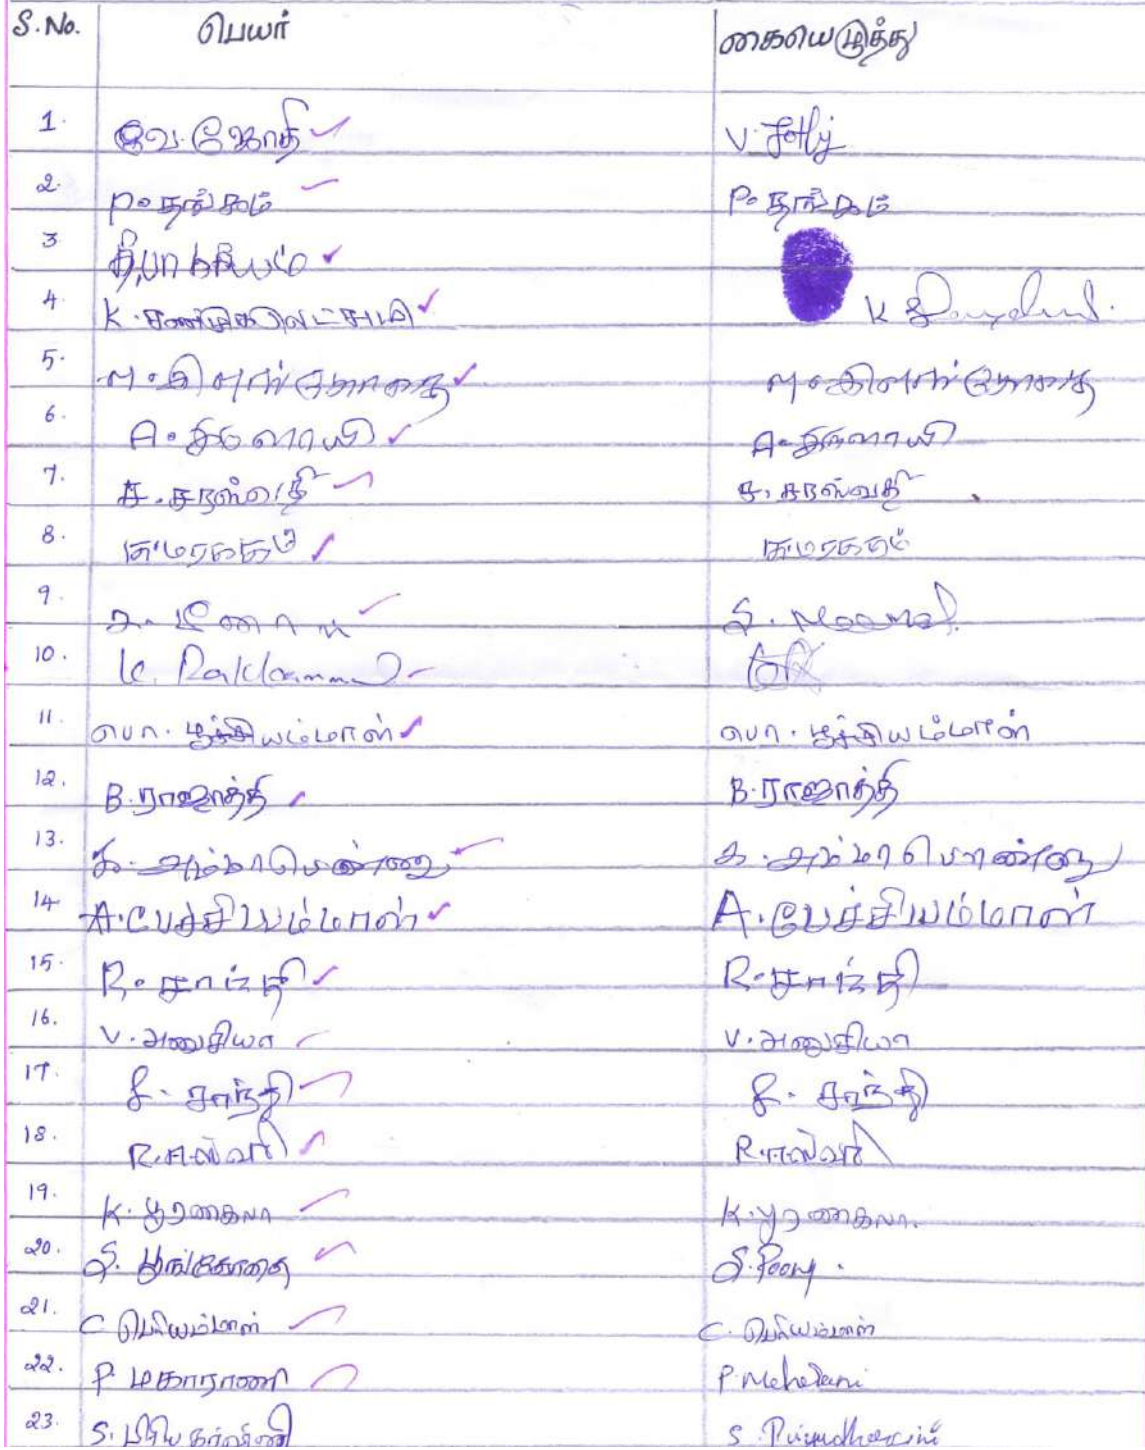 S.No. பெயர் கையெழுத்து
1. வே. ஜோதி V. Jothy
2. P. தங்கம் P. தங்கம்
3. தீபாக்கியம்
4. K. சண்முகலெட்சுமி K
5. M. கிளார்கோதை M. கிளார்கோதை
6. A. திருளாயி A. திருளாயி
7. ச. சரஸ்வதி ச. சரஸ்வதி
8. கு.மரகதம் கு.மரகதம்
9. S. Meena
10. K. Rakkammal
11. பொ. பூச்சியம்மாள் பொ. பூச்சியம்மாள்
12. B. ராஜாத்தி B. ராஜாத்தி
13. க. அம்மாபொண்ணு க. அம்மாபொண்ணு
14 A. பேச்சியம்மாள் A. பேச்சியம்மாள்
15. R. சாந்தி R. சாந்தி
16. V. அனுசியா V. அனுசியா
17. S. சாந்தி S. சாந்தி
18. R. செல்வி R. செல்வி
19. K. பூரணகலா K. பூரணகலா.
20. S. பூங்கோதை S. Poong.
21. C பெரியம்மாள் C. பெரியம்மாள்
22. P. மகாராணி P. Maharani
23. S. பிரியதர்ஷினி S. Priyadharsini